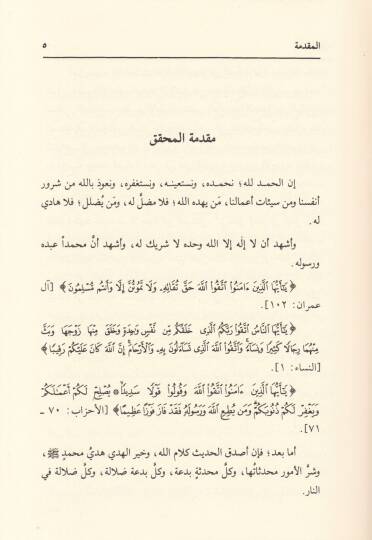 المقدمة ٥
مقدمة المحقق
إن الحمـد لله؛ نحمـده، ونستعينـه، ونستغفره، ونعوذ بالله من شرور
أنفسنا ومن سيئات أعمالنا، مَن يهده الله؛ فلا مضلَّ له، ومَن يُضلل؛ فلا هادي
له.
وأشهد أن لا إلٰه إلا الله وحده لا شريك له، وأشهد أنَّ محمداً عبده
ورسوله.
﴿يَٰٓأَيُّهَا ٱلَّذِينَ ءَامَنُوا۟ ٱتَّقُوا۟ ٱللَّهَ حَقَّ تُقَاتِهِۦ وَلَا تَمُوتُنَّ إِلَّا وَأَنتُم مُّسْلِمُونَ﴾ [آل
عمران: ١٠٢].
﴿يَٰٓأَيُّهَا ٱلنَّاسُ ٱتَّقُوا۟ رَبَّكُمُ ٱلَّذِى خَلَقَكُم مِّن نَّفْسٍ وَٰحِدَةٍ وَخَلَقَ مِنْهَا زَوْجَهَا وَبَثَّ
مِنْهُمَا رِجَالًا كَثِيرًا وَنِسَآءً ۚ وَٱتَّقُوا۟ ٱللَّهَ ٱلَّذِى تَسَآءَلُونَ بِهِۦ وَٱلْأَرْحَامَ ۚ إِنَّ ٱللَّهَ كَانَ عَلَيْكُمْ رَقِيبًا﴾
[النساء: ١].
﴿يَٰٓأَيُّهَا ٱلَّذِينَ ءَامَنُوا۟ ٱتَّقُوا۟ ٱللَّهَ وَقُولُوا۟ قَوْلًا سَدِيدًا * يُصْلِحْ لَكُمْ أَعْمَٰلَكُمْ
وَيَغْفِرْ لَكُمْ ذُنُوبَكُمْ ۗ وَمَن يُطِعِ ٱللَّهَ وَرَسُولَهُۥ فَقَدْ فَازَ فَوْزًا عَظِيمًا﴾ [الأحزاب: ٧٠ ـ
٧١].
أما بعد؛ فإن أصدق الحديث كلام الله، وخير الهدي هديُ محمدٍ ﷺ،
وشرُّ الأمور محدثاتُها، وكلُّ محدثةٍ بدعة، وكلُّ بدعة ضلالة، وكلُّ ضلالة في
النار.